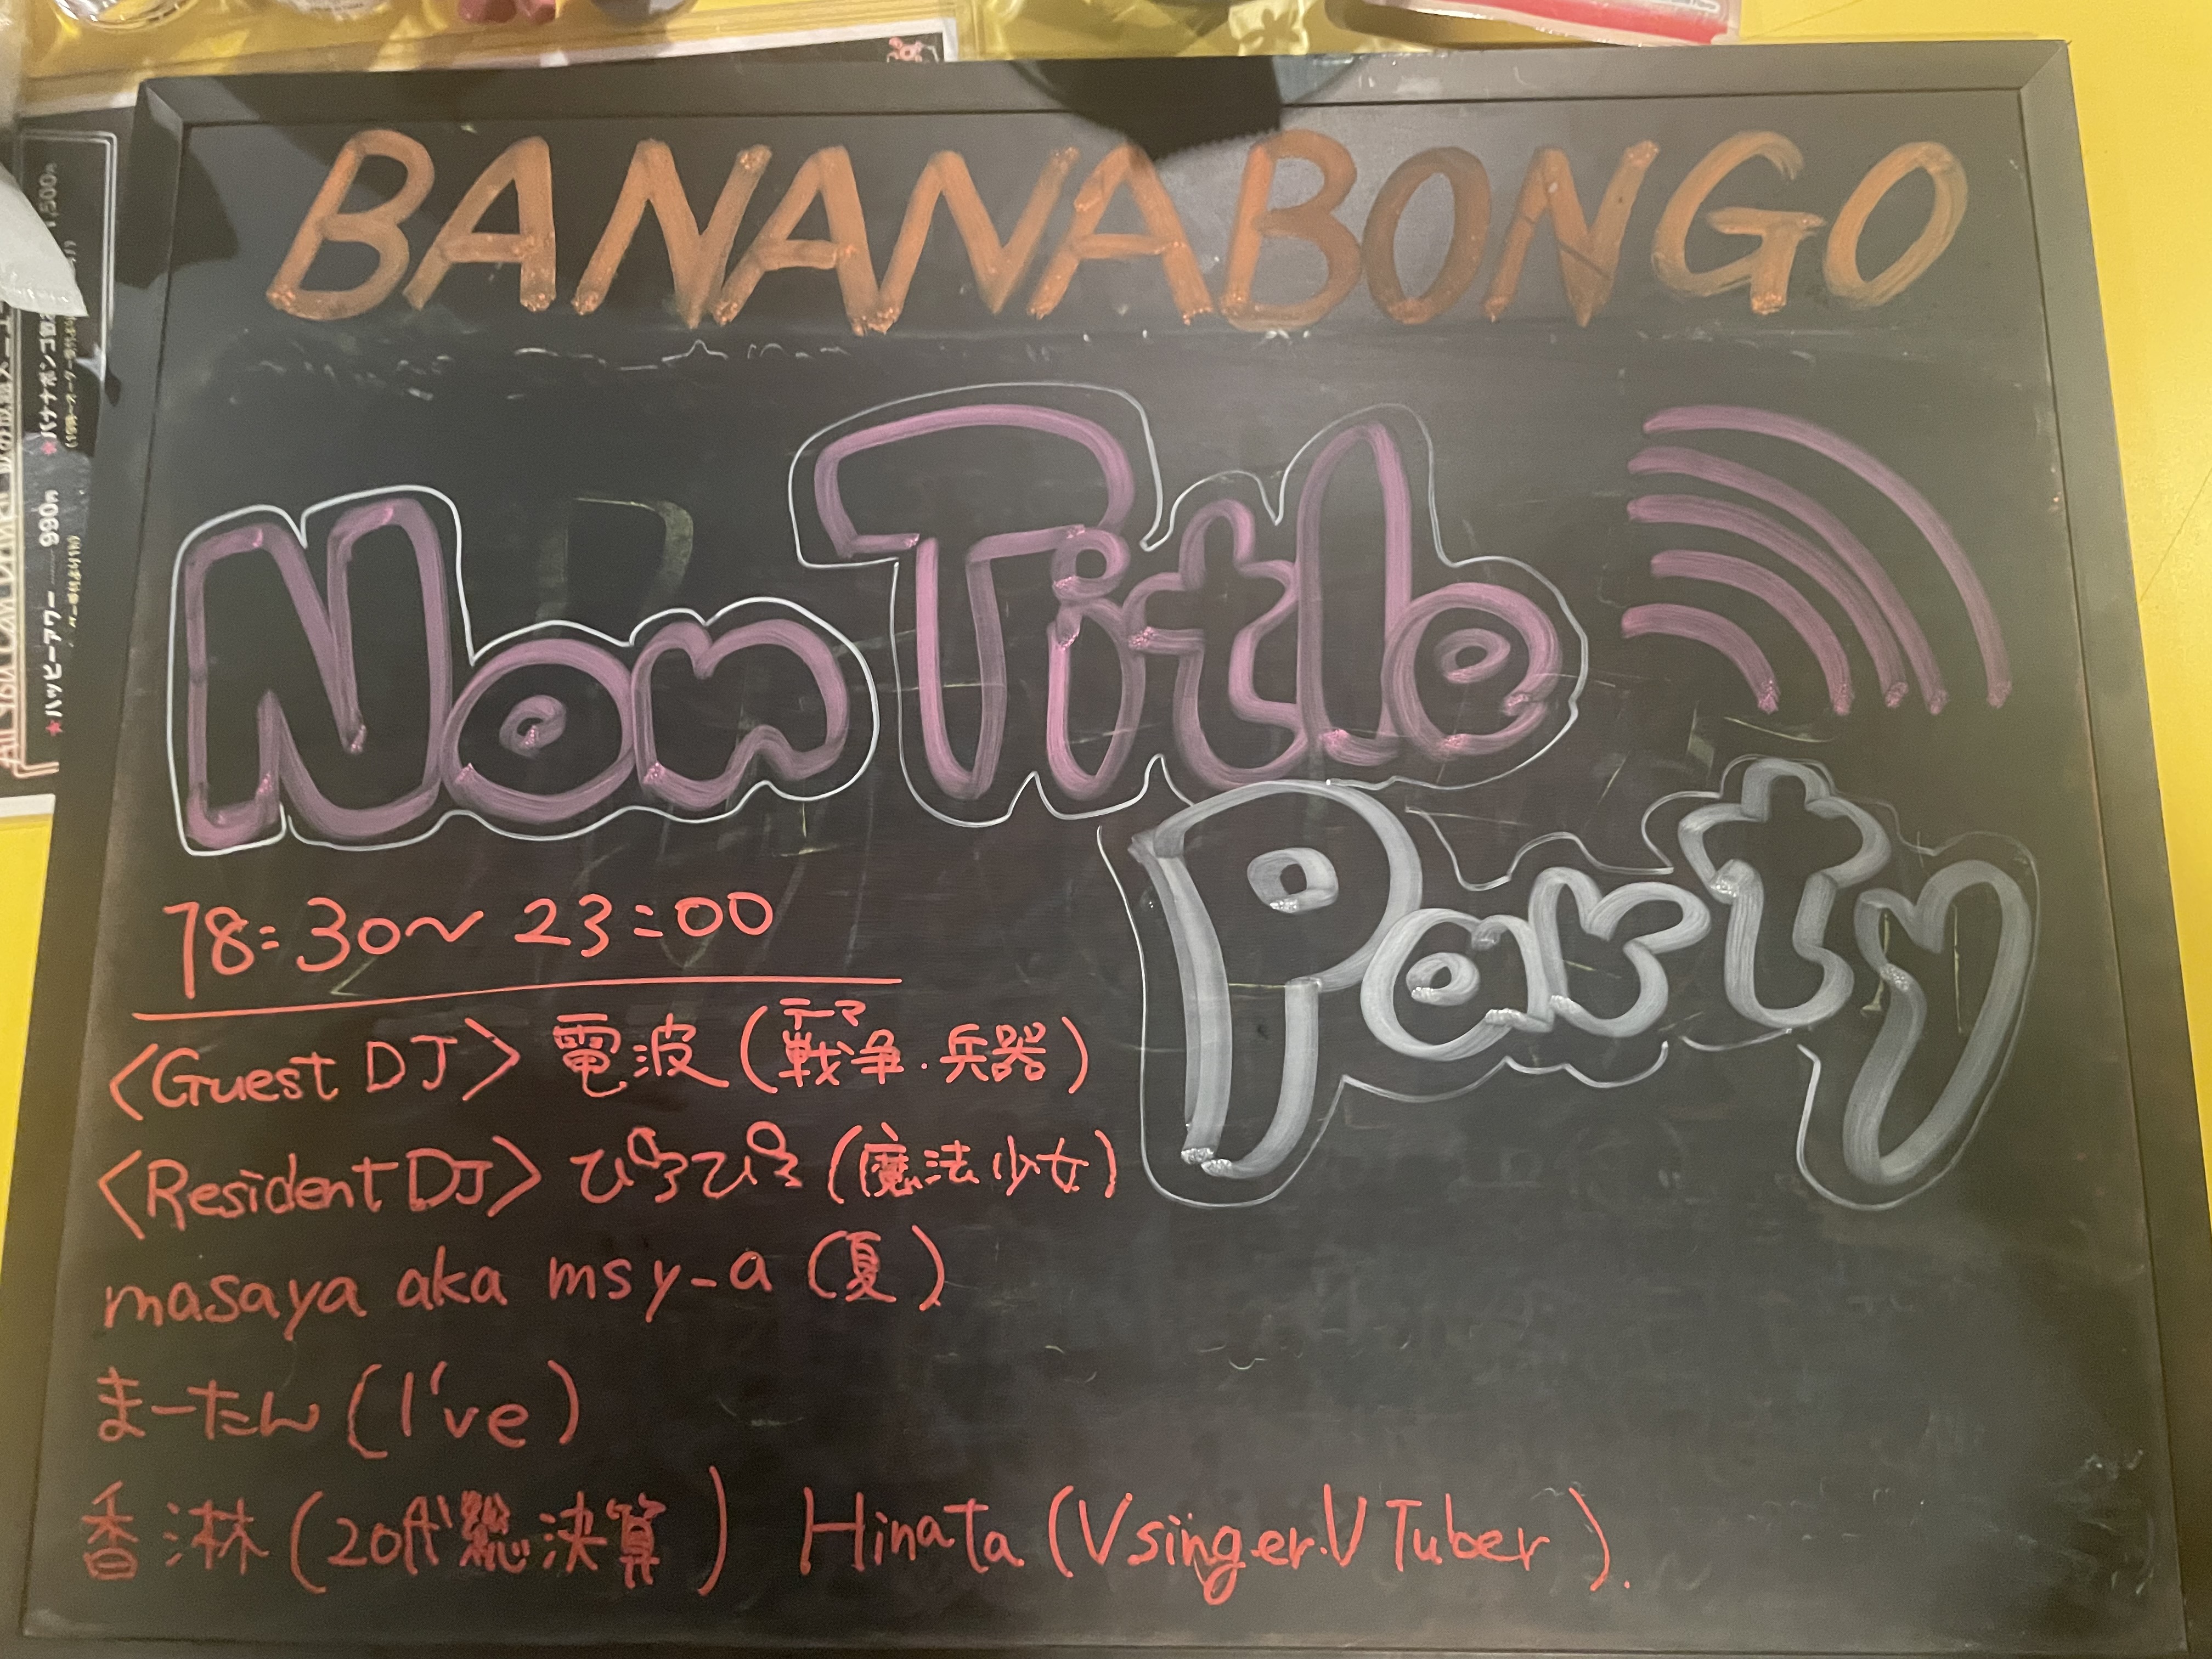 BANANABONGO
Non Title
Party
18:30〜23:00
テーマ
<Guest DJ> 電波 (戦争・兵器)
<Resident DJ> ぴろぴろ (魔法少女)
masaya aka msy_a (夏)
まーたん (I've)
香淋 (20代総決算) Hinata (Vsinger.VTuber).
990
★ハッピーアワー